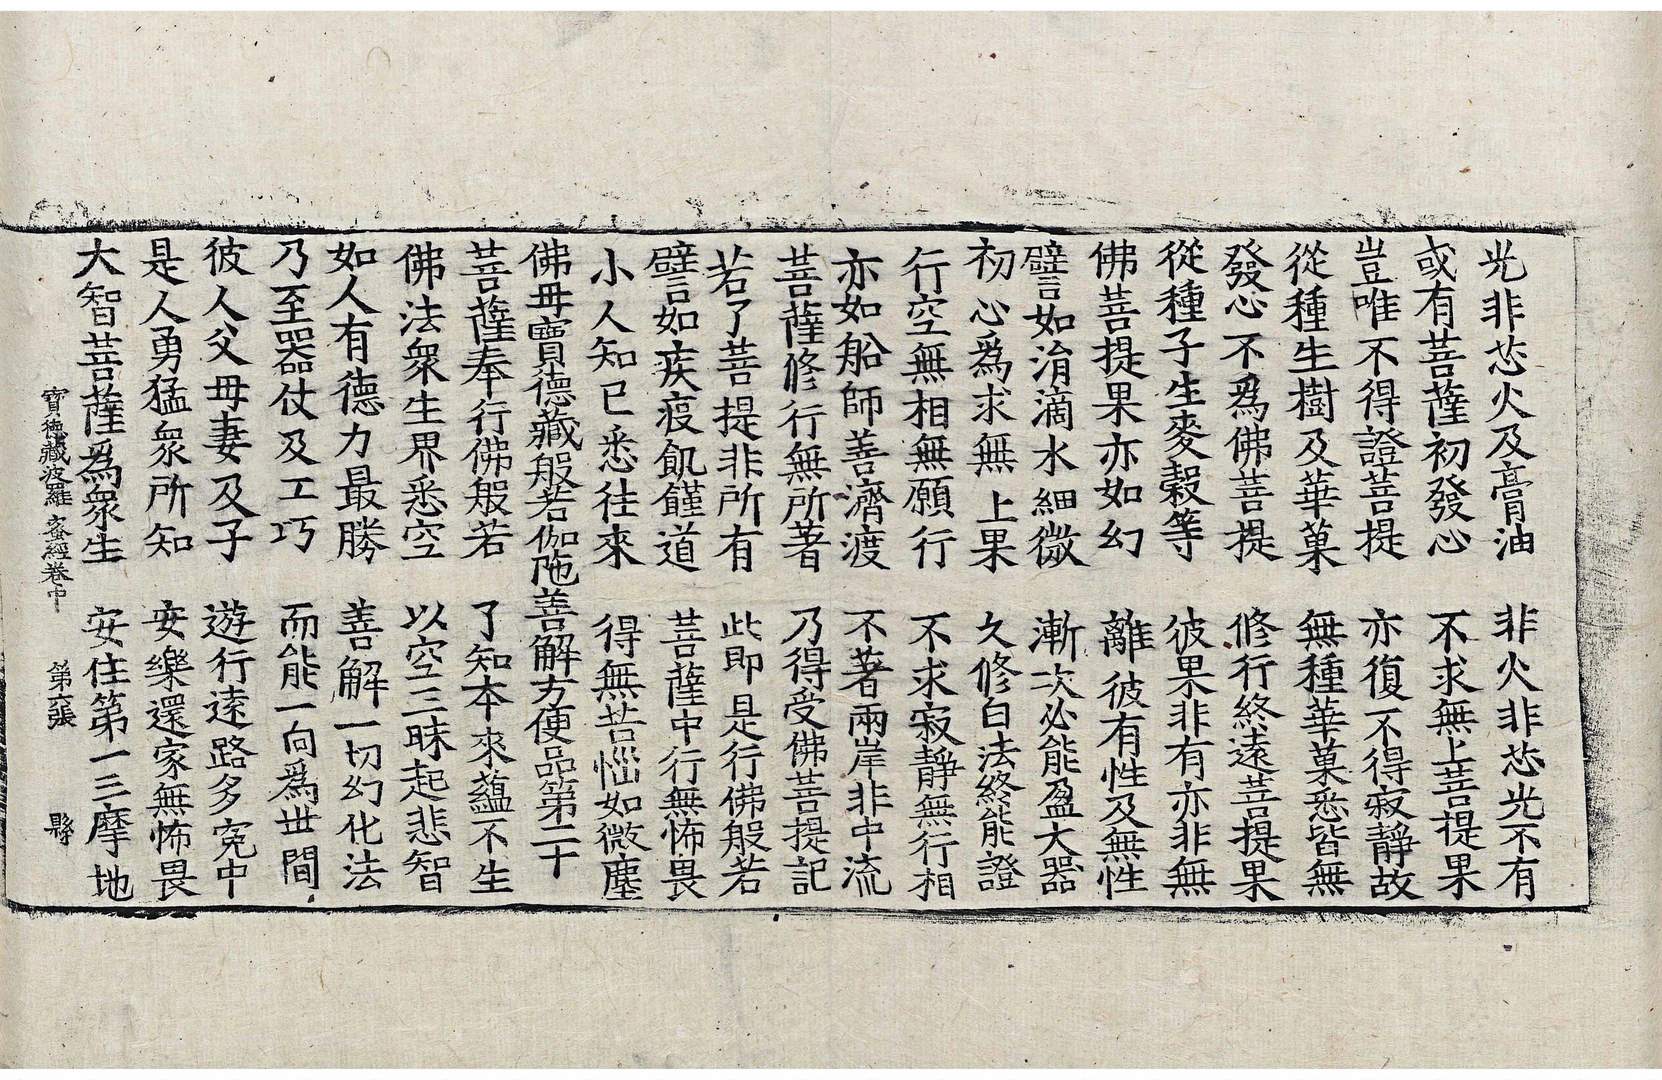 光非芯火及膏油　非火非芯光不有
或有菩薩初發心　不求無上菩提果
豈唯不得證菩提　亦復不得寂靜故
從種生樹及華菓　無種華菓悉皆無
發心不爲佛菩提　修行終遠菩提果
從種子生麥穀等　彼果非有亦非無
佛菩提果亦如幻　離彼有性及無性
譬如涓滴水細微　漸次必能盈大器
初心爲求無上果　久修白法終能證
行空無相無願行　不求寂靜無行相
亦如船師善濟渡　不著兩岸非中流
菩薩修行無所著　乃得受佛菩提記
若了菩提非所有　此即是行佛般若
譬如疾疫飢饉道　菩薩中行無怖畏
小人知已悉往來　得無苦惱如微塵
佛母寶德藏般若伽陁善解方便品第二十
菩薩奉行佛般若　了知本來蘊不生
佛法衆生界悉空　以空三昧起悲智
如人有德力最勝　善解一切幻化法
乃至器仗及工巧　而能一向爲世間
彼人父母妻及子　遊行遠路多寃中
是人勇猛衆所知　安樂還家無怖畏
大智菩薩爲衆生　安住第一三摩地
寶德藏波羅蜜經卷中　第六張　縣